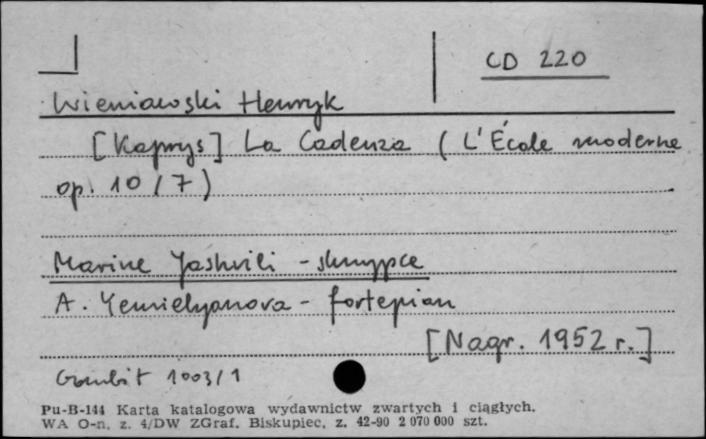 CD 220
Wieniawski Henryk
[Kaprys] La Cadenza (L'École moderne
op. 10/7)
Marine Jashvili - skrzypce
A. Yemielyanova - fortepian
[Nagr. 1952 r.]
Gambit 1003/1
Pu-B-144 Karta katalogowa wydawnictw zwartych i ciągłych.
WA O-n. z. 4/DW ZGraf. Biskupiec, z. 42-90 2 070 000 szt.